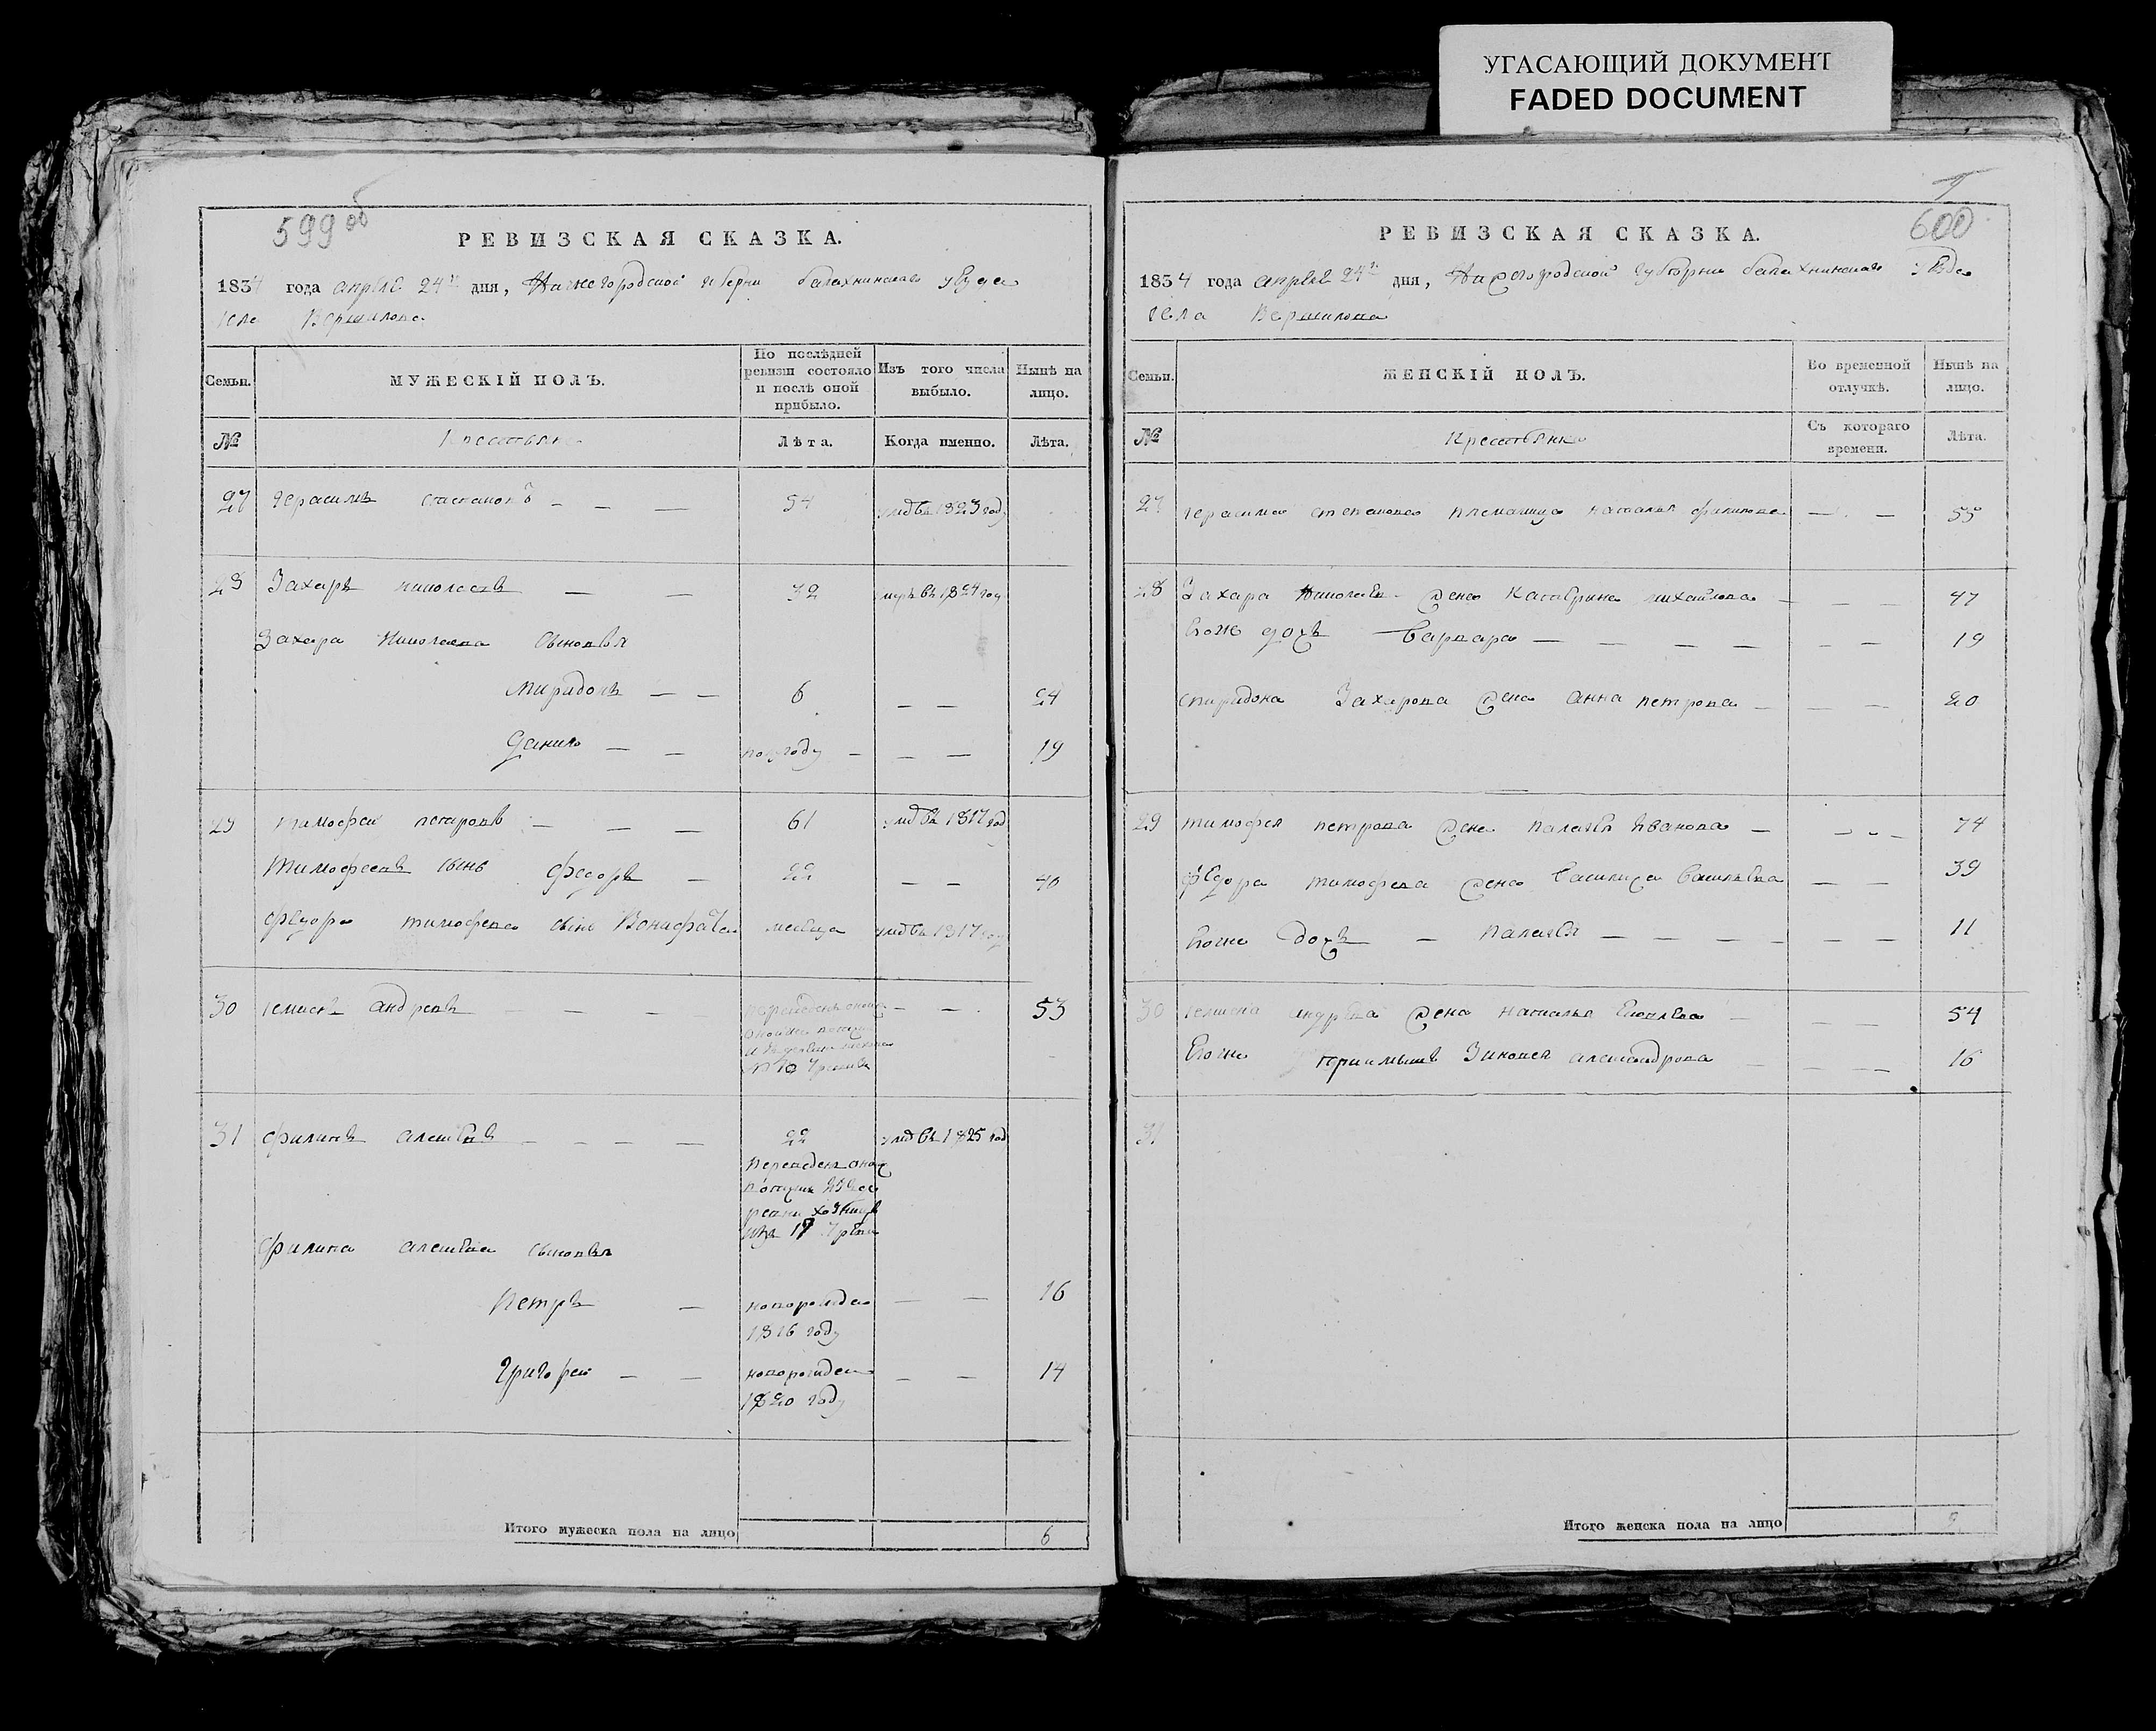 УГАСАЮЩИЙ ДОКУМЕНТ
FADED DOCUMENT
599 об
РЕВИЗСКАЯ СКАЗКА.
1834 года апреля 24 дня, Нижегородской губерни балахнинскаго уезда
села Вершилова
Семьи. МУЖЕСКІЙ ПОЛЪ. По послѣдней ревизіи состояло и послѣ оной прибыло. Изъ того числа выбыло. Нынѣ на лицо.
№ Крестьяне Лѣта. Когда именно. Лѣта.
27 Герасимъ степановъ — — — 54 умдвъ 1823 году
28 Захаръ николаевъ — — 32 умръ въ 1824 году
Захара Николаева сыновья
спиридонъ — — 6 — — 24
Данило — — полугоду — — — 19
29 тимофей петровъ — — — 61 умдвъ 1817 год
тимофеевъ сынъ федоръ — 22 — — 40
федора тимофеева сынъ Вонифатей месяца умдвъ 1817 году
30 семенъ андреевъ — — — — — 53
31 филипъ алексѣевъ — — — — 22 умдвъ 1825 год
филипа алексѣева сыновья
Петръ — новорожден — — 16
1816 году
Григорей — — новорожден — — 14
1820 году
Итого мужеска пола на лицо 6
600
РЕВИЗСКАЯ СКАЗКА.
1834 года апреля 24 дня, Нижегородской губернии балахнинскаго уѣзда
села Вершилова
Семьи. ЖЕНСКІЙ ПОЛЪ. Во временной отлучкѣ. Нынѣ на лицо.
№ Крестьянки Съ котораго времени. Лѣта.
27 герасима степанова племяница наталья филипова — — 55
28 Захара Николаева жена Катерина михайлова — — — 47
Егож дочь варвара — — — — — — 19
спиридона Захарова жена анна петрова — — — 20
29 тимофея петрова жена палагея Иванова — — — — 74
федора тимофеева жена василиса васильева — — 39
Егоже дочь — палагея — — — — — — 11
30 семена андреева жена наталья — — — 54
Егоже приимышъ Зиновея александрова — — — 16
31
Итого женска пола на лицо 9